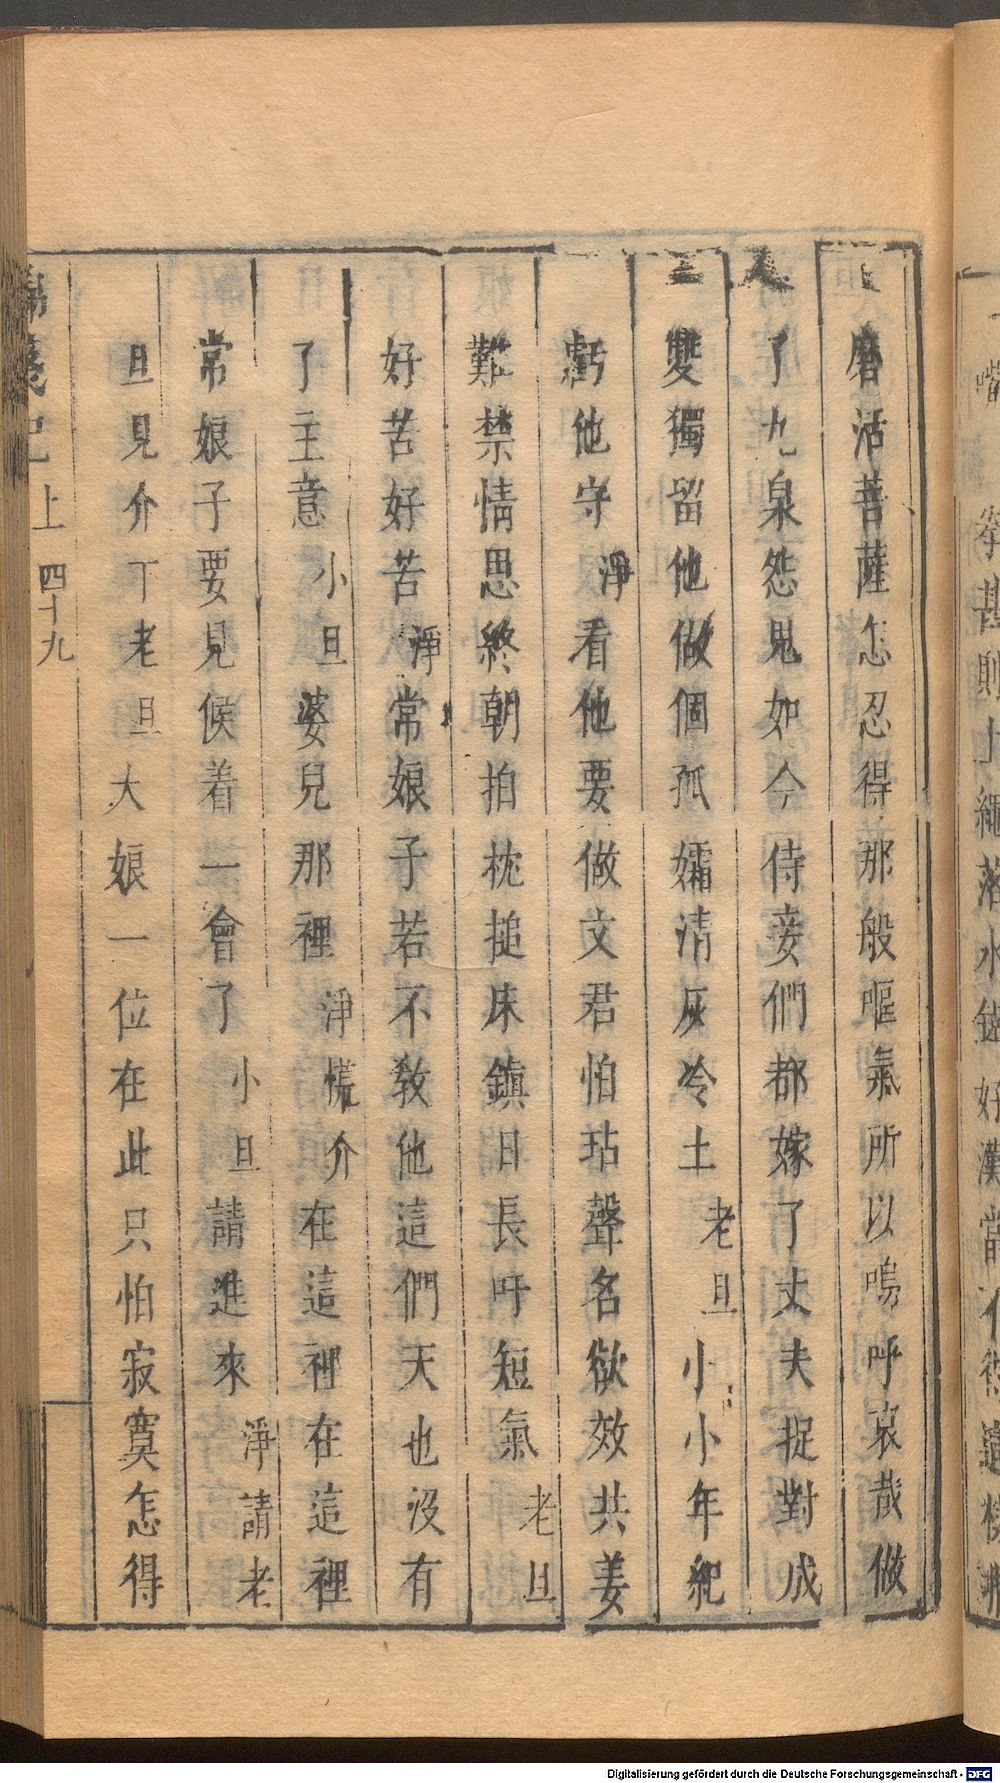 磨活菩薩怎忍得那般嘔氣所以嗚呼哀哉做
了九泉怨鬼如今侍妾們都嫁了丈夫捉對成
雙獨留他做個孤孀清灰冷土老旦小小年紀
虧他守淨看他要做文君怕玷聲名欲效共姜
難禁情思終朝拍枕搥床鎮日長吁短氣老旦
好苦好苦淨常娘子若不教他這們天也沒有
了主意小旦婆兒那裡淨慌介在這裡在這裡
常娘子要見候着一會了小旦請進來淨請老
旦見介丁老旦大娘一位在此只怕寂寞怎得
箋記上 四十九
Digitalisierung gefördert durch die Deutsche Forschungsgemeinschaft - DFG